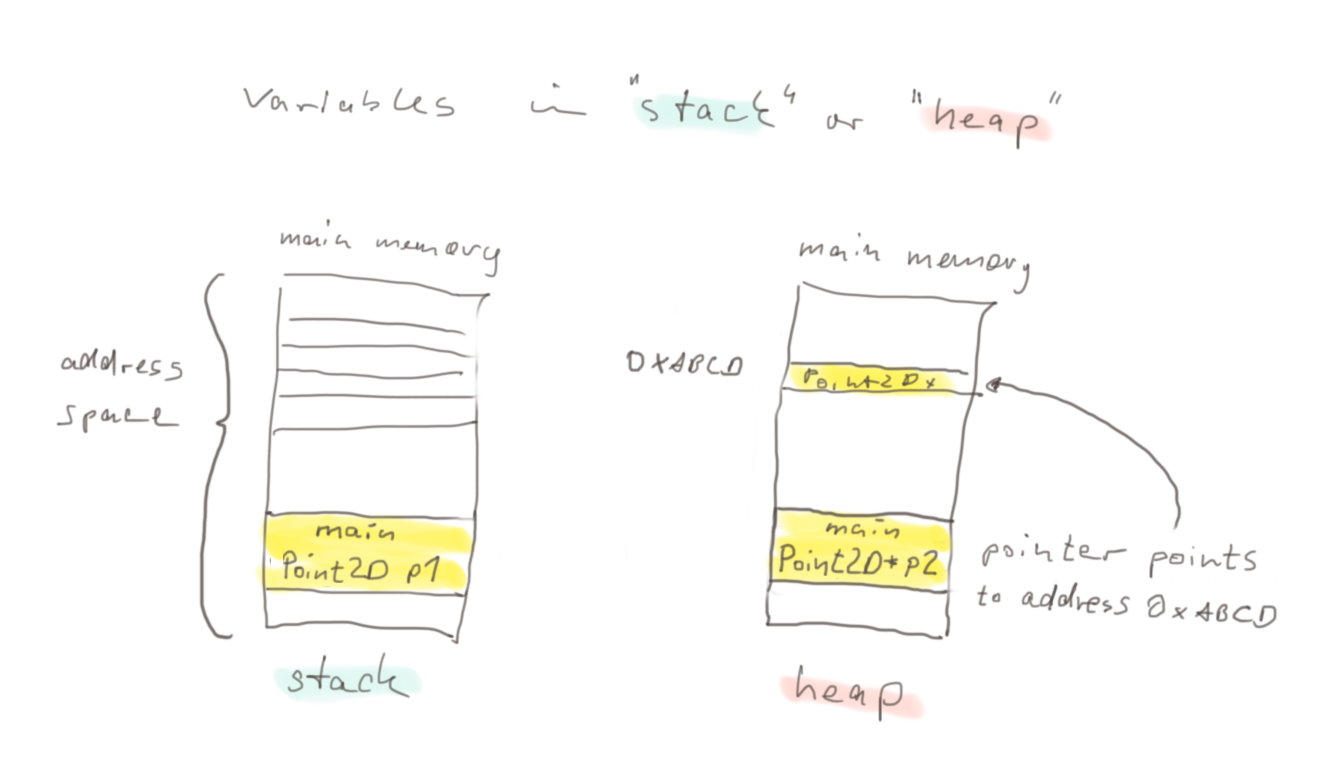 Variables in "stack" or "heap"
main memory
address
space
main
Point2D p1
stack
main memory
0xABCD
Point2D x
main
Point2D* p2
pointer points
to address 0xABCD
heap